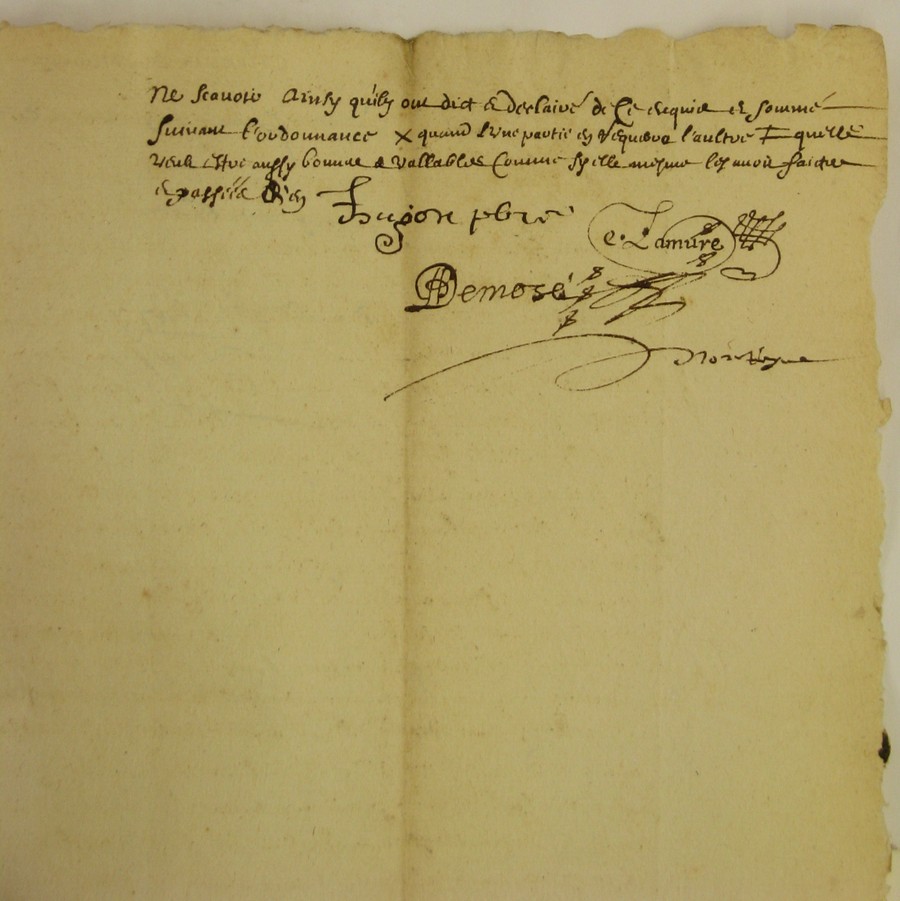 ne scavoir ainsy qu'ils ont dict & desclairé de ce enquis et sommé
suivant l'ordonnance x quand l'une partie en requerra l'aultre ‡ quelle
veult estre aussy bonne & vallables comme sy elle mesme les avoit faicte
et passée
Hugon pbre
C. Lamure
Demose